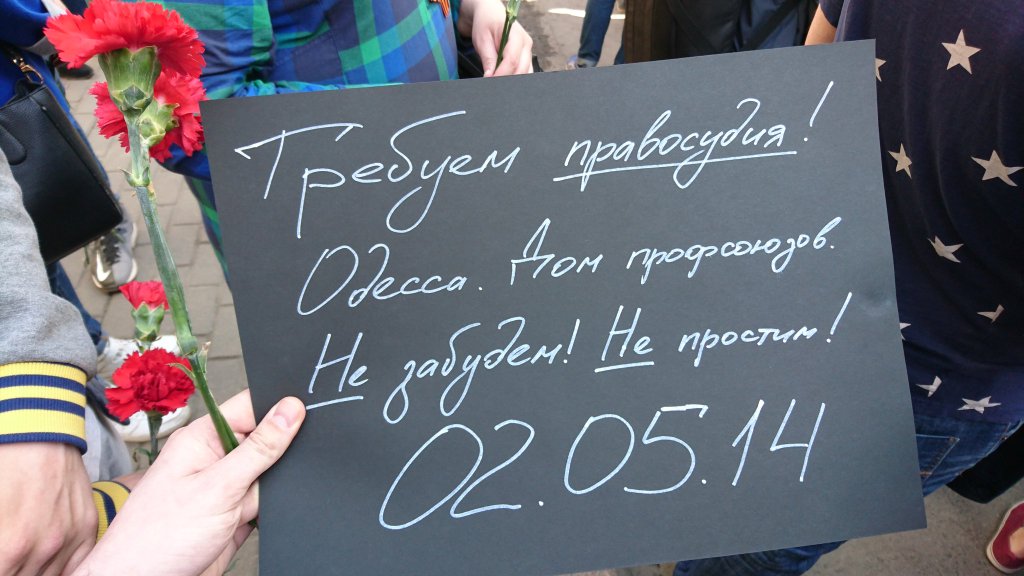 Требуем правосудия!
Одесса. Дом профсоюзов.
Не забудем! Не простим!
02.05.14